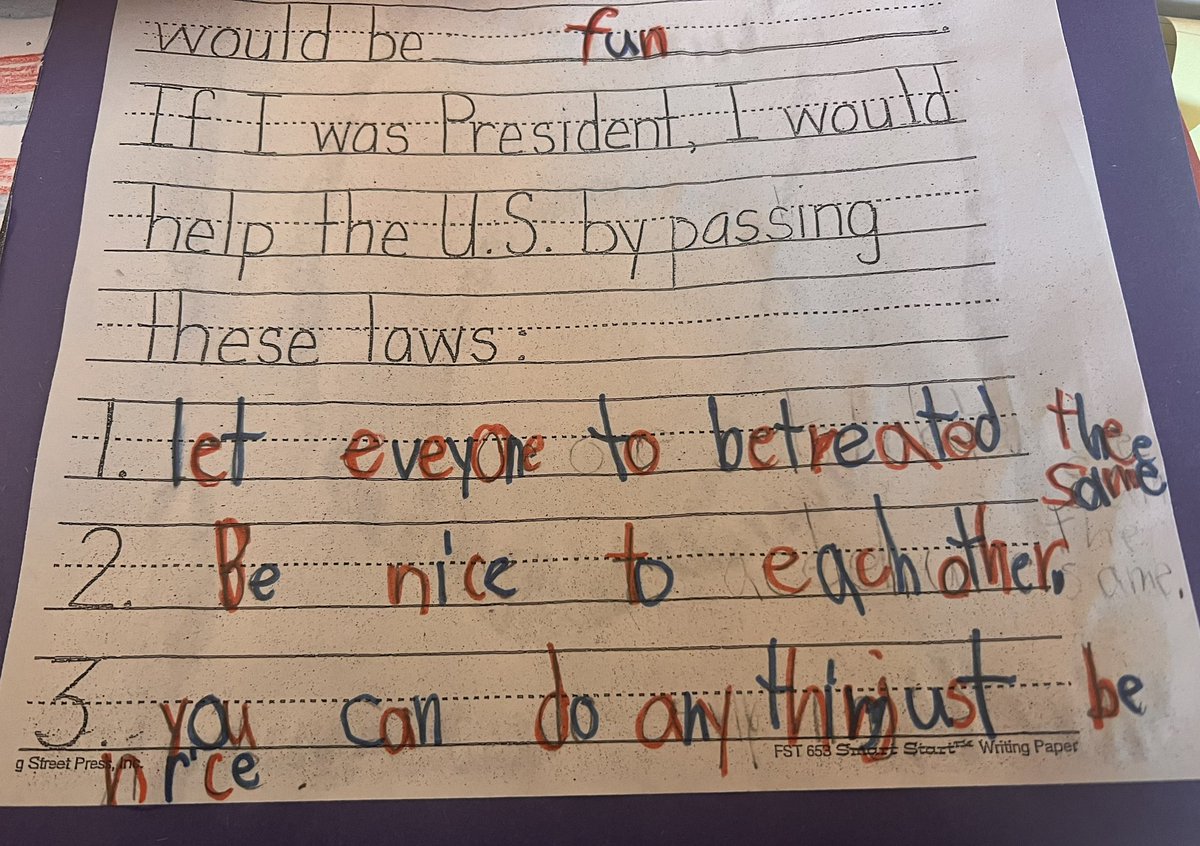 would be fun .
If I was President, I would
help the U.S. by passing
these laws:
1. let eveyone to betreated the
same
2. Be nice to each other.
The
same.
3. you can do any thinjust be
nice .
g Street Press, Inc.
FST 653 Smart Start™ Writing Paper